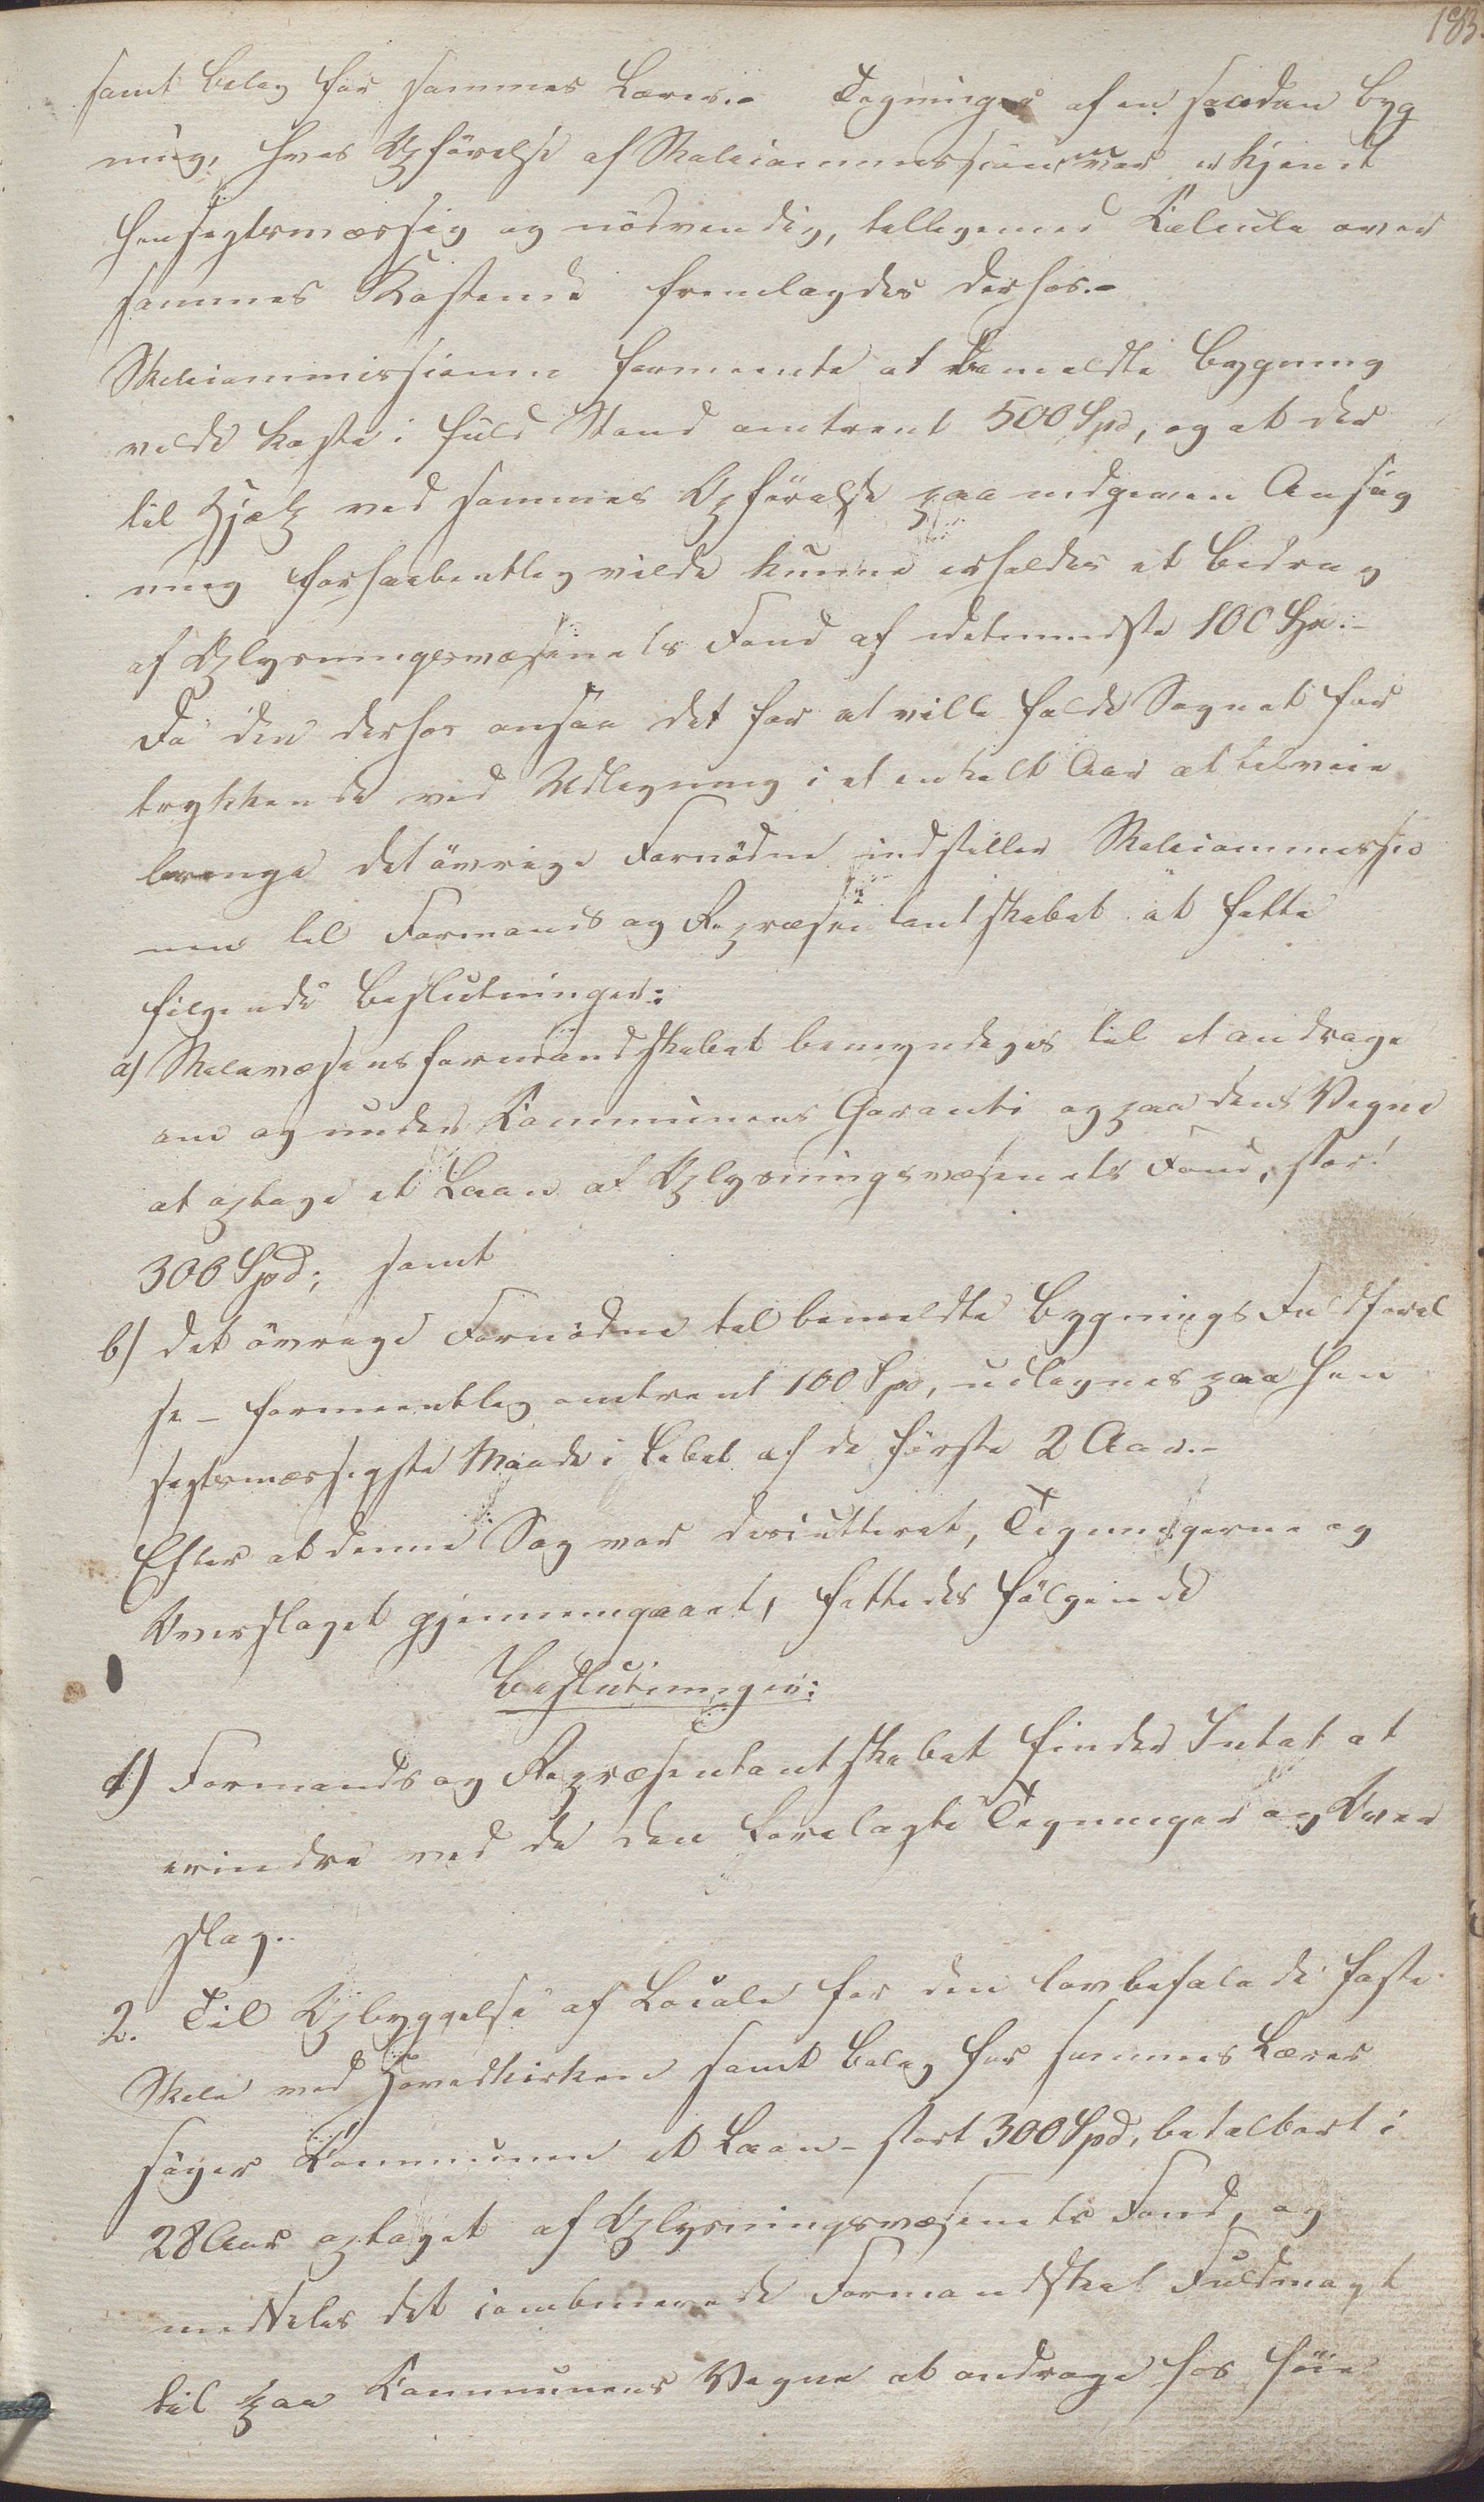 183.
samt Belæg for sammes Lærer.- Tegninger af en saadan Byg
ning, hvis Opförelse af Skolecommissionen var erkjendt
hensigtsmæssig og nödvendig, tilligemed Calcule over
sammes Kostende fremlagdes derhos.-
Skolecommissionen formeente at bemeldte Bygning
vilde koste i fuld Stand omtrent 500 Spd, og at der
til Hjælp ved sammes Opförelse paa indgiven Ansög
ning forhaabentlig vilde kunne erholdes et Bidrag
af Oplysningsvæsenets Fond af idetmindste 100 Spd.-
Da den derhos ansaa det for at ville falde Sognet for
trykkende ved Udlegning i et enkelt Aar at tilveie
bringe det övrige Fornödne indstiller Skolecommissio
nen til Formands og Repræsentantskabet at fatte
fölgende Beslutninger:
a) Skolevæsensformandskabet bemyndiges til at andrage
om og under Communens Garanti og paa dens Vegne
at optage et Laan af Oplysningsvæsenets Fond, stor!
300 Spd; samt
b) det övrige Fornödne til bemeldte Bygnings Fuldförel
se - formeentlig omtrent 100 Spd, udlignes paa hen
sigtsmæssigste Maade i Löbet af de förste 2 Aar.-
Efter at denne Sag var discutteret, Tegningerne og
Overslaget gjennemgaaet, fattedes fölgende
Beslutninger:
1) Formands og Repræsentantskabet finder Intet at
erindre ved de den forelagte Tegninger og Over
slag.
2. Til Opbyggelse af Locale for den lovbefalede faste
Skole ved Hovedkirken samt Belæg for sammes Lærer
söger Communen et Laan - stort 300 Spd, betalbart i
28 Aar optaget af Oplysningsvæsenets Fond, og
meddeles det combinerede Formandskab Fuldmagt
til paa Communens Vegne at andrage hos höie